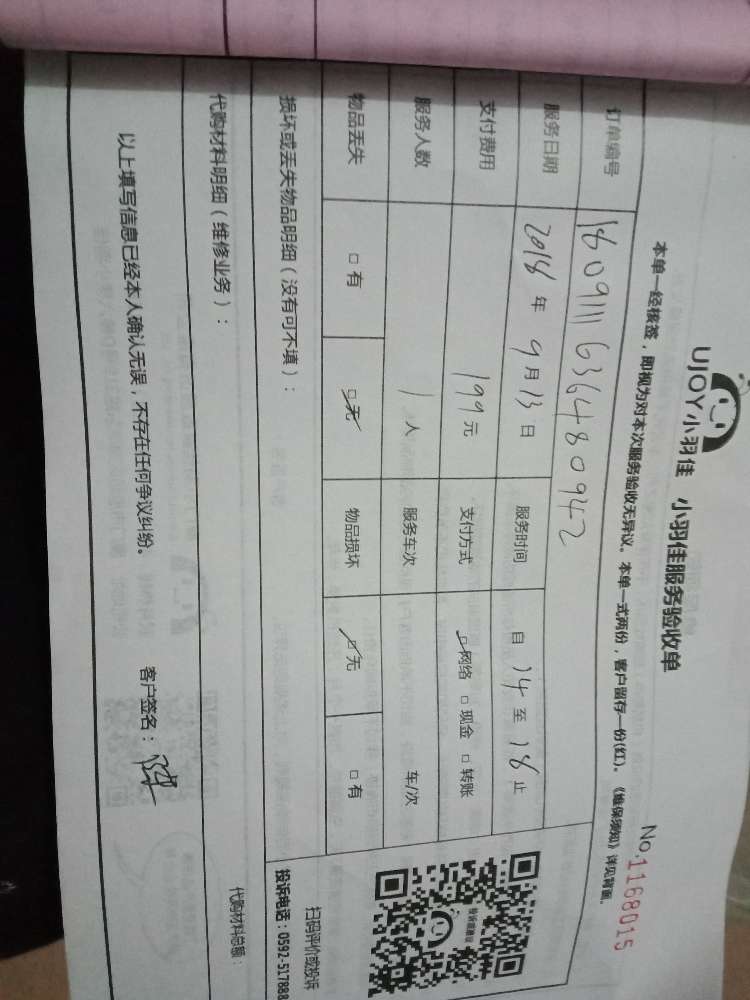 UJOY小羽佳 小羽佳服务验收单
No.1168015
本单一经核签，即视为对本次服务验收无异议。本单一式两份，客户留存一份(红)。《维保须知》详见背面。
订单编号 1809111636480942
服务日期 2018年9月13日 服务时间 自14至18止
支付费用 199元 支付方式 ☑网络 □现金 □转账
服务人数 1人 服务车次 车/次
物品丢失 □有 ☑无 物品损坏 ☑无 □有
损坏或丢失物品明细（没有可不填）：
投诉或建议
扫码评价或投诉
投诉电话：0592-517888
代购材料明细（维修业务）：
代购材料总额：
以上填写信息已经本人确认无误，不存在任何争议纠纷。 客户签名：陈